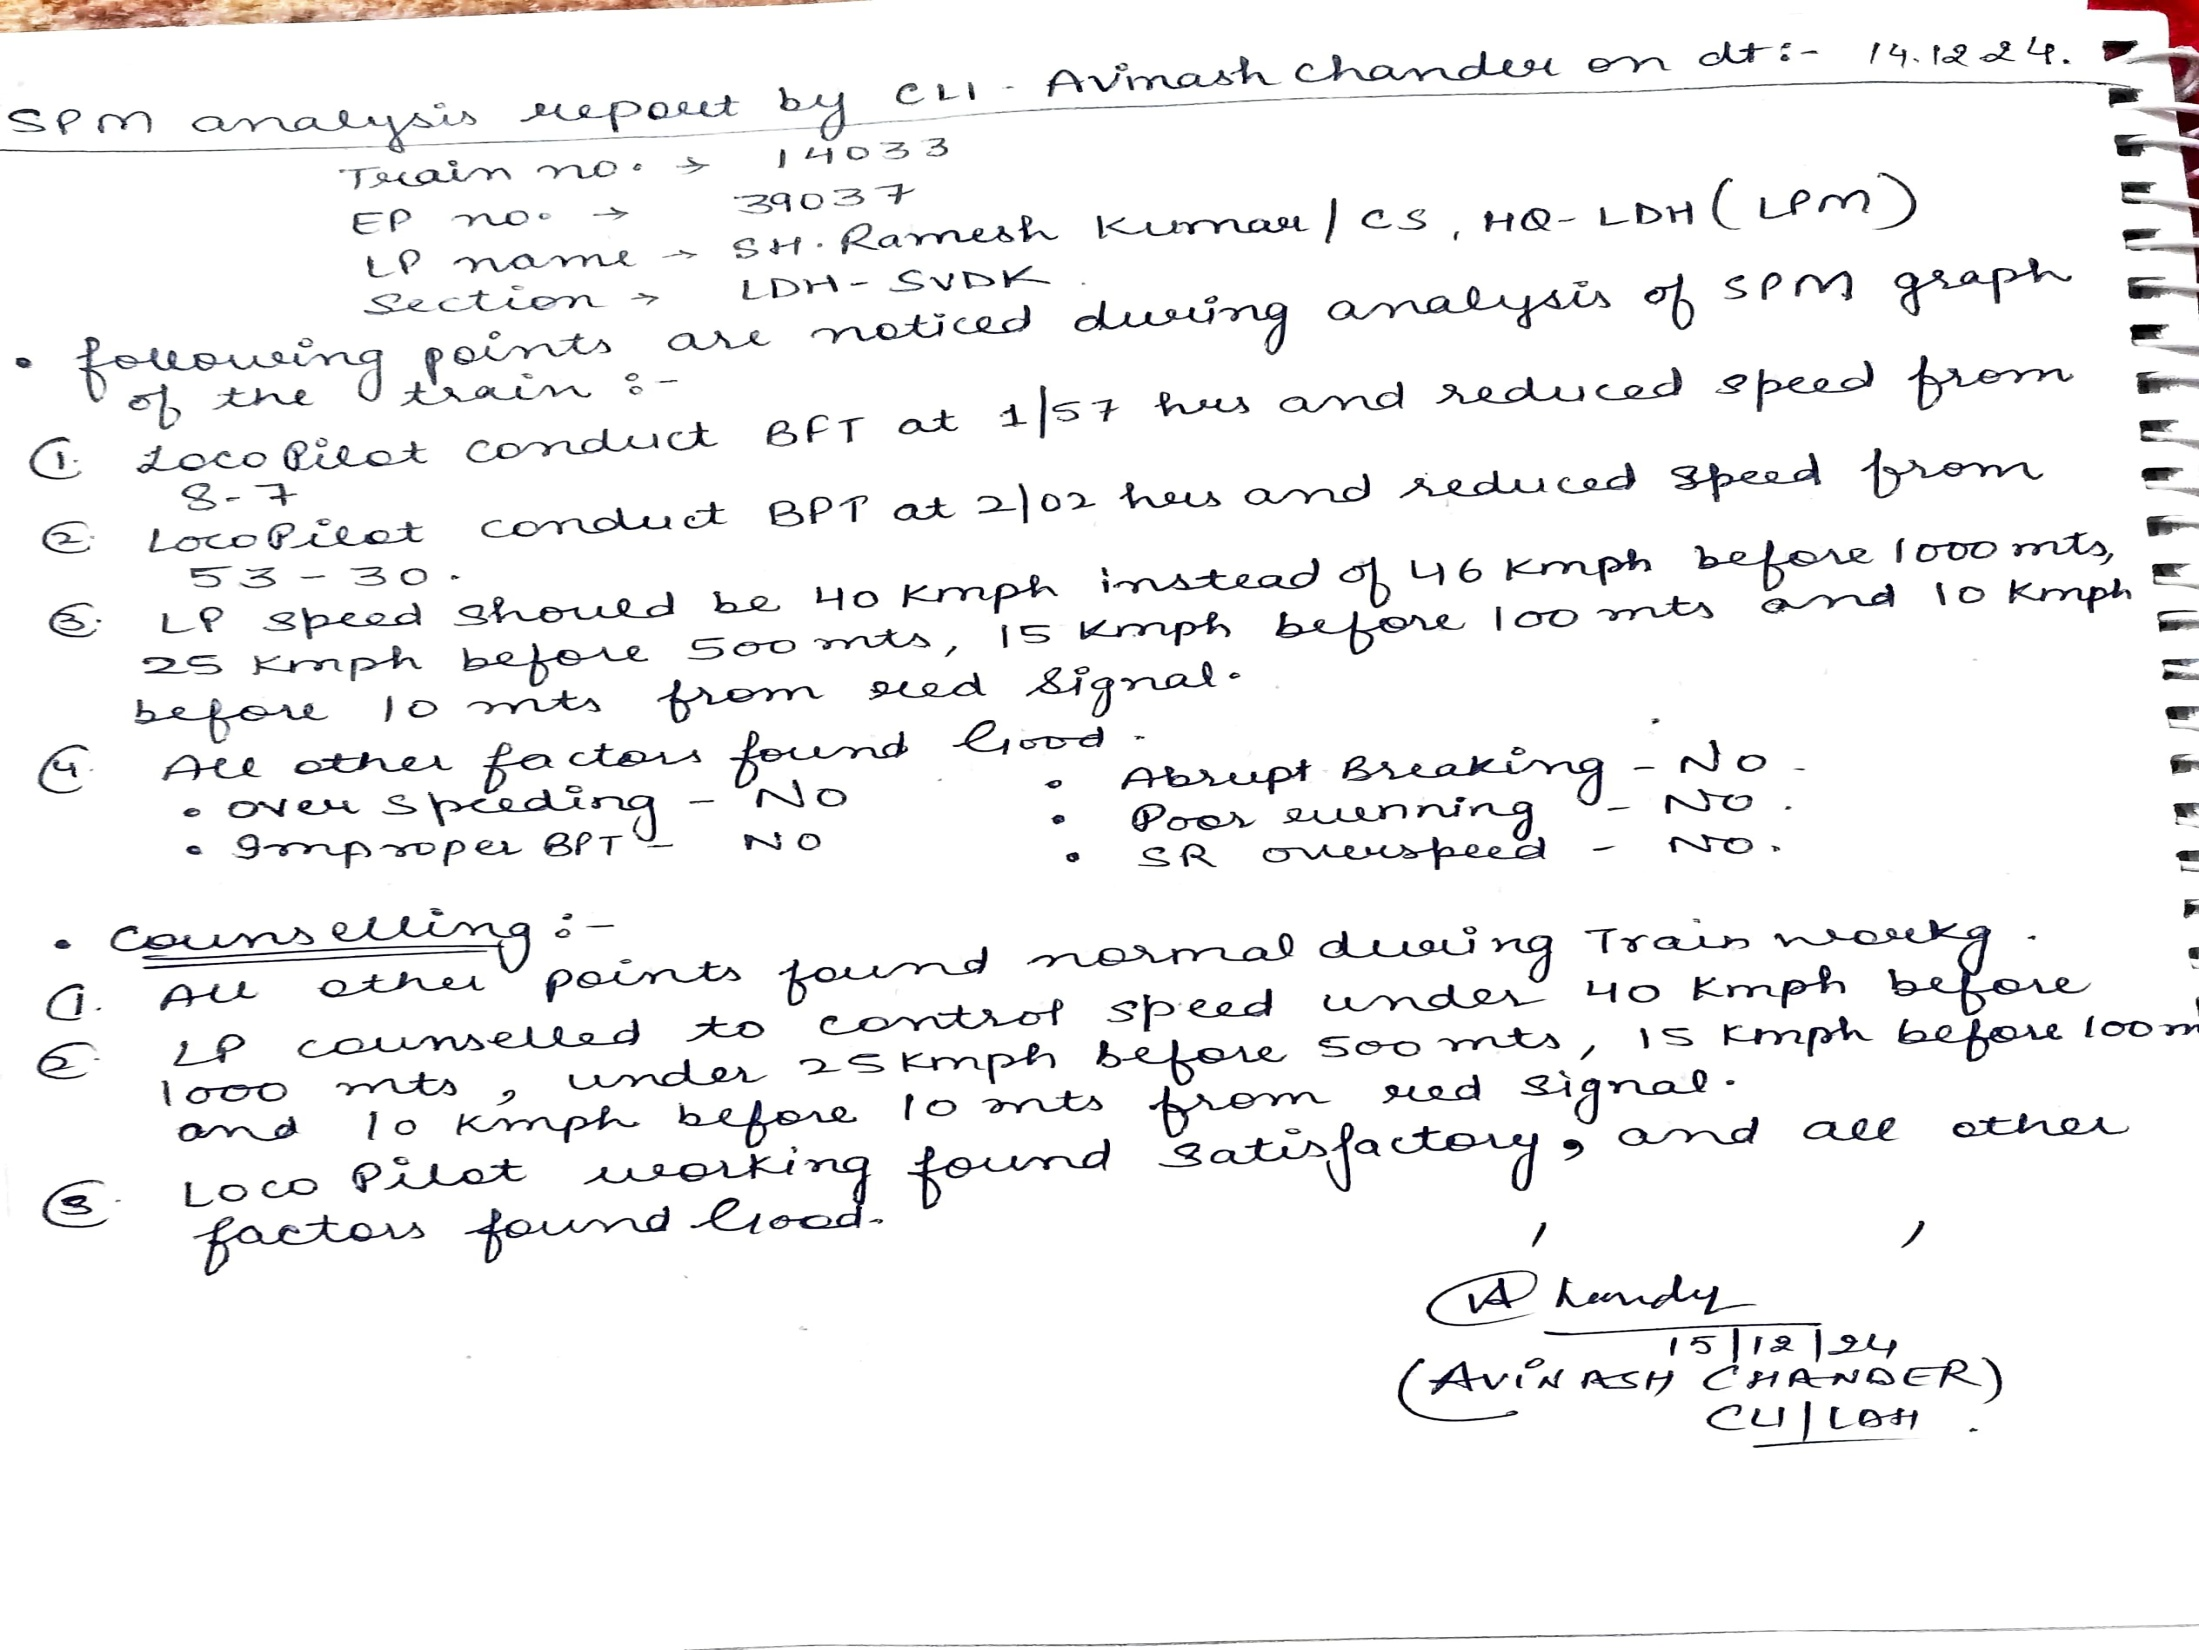 SPM analysis report by CLI - Avinash Chander on dt :- 14.12.24.
Train no. → 14033
EP no. → 39037
LP name → SH. Ramesh Kumar / CS, HQ-LDH (LPM)
Section → LDH - SVDK.
• following points are noticed during analysis of SPM graph
of the train :-
1. Loco Pilot conduct BFT at 1/57 hrs and reduced speed from
8-7
2. Loco Pilot conduct BPT at 2/02 hrs and reduced speed from
53 - 30.
3. LP speed should be 40 kmph instead of 46 kmph before 1000 mts,
25 kmph before 500 mts, 15 kmph before 100 mts and 10 kmph
before 10 mts from red signal.
4. All other factors found Good.
• over speeding - NO • Abrupt Breaking - No.
• Improper BPT - NO • Poor running - No.
• SR overspeed - NO.
• Counselling :-
1. All other points found normal during Train workg.
2. LP counselled to control speed under 40 kmph before
1000 mts, under 25 kmph before 500 mts, 15 kmph before 100 m
and 10 kmph before 10 mts from red signal.
3. Loco Pilot working found satisfactory, and all other
factors found Good.
15/12/24
(AVINASH CHANDER)
CLI/LDH.